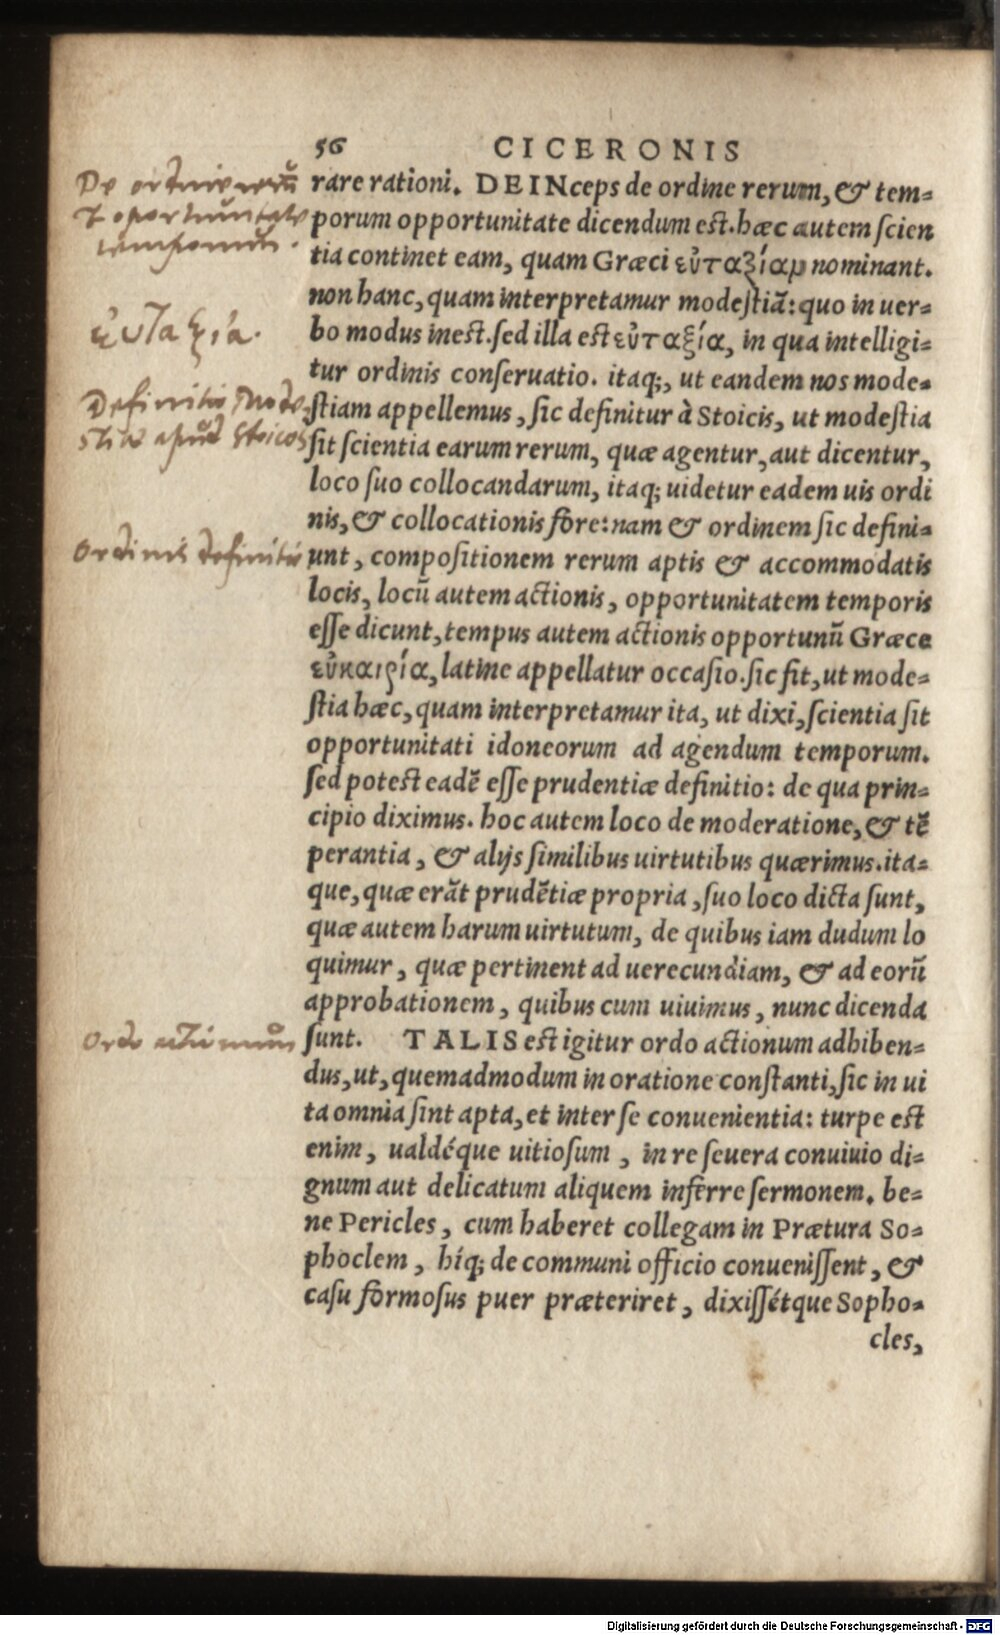 56 CICERONIS
De ordine rerũ
& oportunitate
temporum.
εὐταξία.
Definitio Mode-
stiæ apud Stoicos
Ordinis definitio
Ordo actionum
rare rationi. DEINceps de ordine rerum, & tem=
porum opportunitate dicendum est. hæc autem scien
tia continet eam, quam Græci εὐταξίαν nominant.
non hanc, quam interpretamur modestiã: quo in uer=
bo modus inest. sed illa est εὐταξία, in qua intelligi=
tur ordinis conseruatio. itaq;, ut eandem nos mode=
stiam appellemus, sic definitur à Stoicis, ut modestia
sit scientia earum rerum, quæ agentur, aut dicentur,
loco suo collocandarum, itaq; uidetur eadem uis ordi
nis, & collocationis fore: nam & ordinem sic defini=
unt, compositionem rerum aptis & accommodatis
locis, locũ autem actionis, opportunitatem temporis
esse dicunt, tempus autem actionis opportunũ Græce
εὐκαιρία, latine appellatur occasio. sic fit, ut mode=
stia hæc, quam interpretamur ita, ut dixi, scientia sit
opportunitati idoneorum ad agendum temporum.
sed potest eadẽ esse prudentiæ definitio: de qua prin=
cipio diximus. hoc autem loco de moderatione, & tẽ
perantia, & alijs similibus uirtutibus quærimus. ita=
que, quæ erãt prudẽtiæ propria, suo loco dicta sunt,
quæ autem harum uirtutum, de quibus iam dudum lo
quimur, quæ pertinent ad uerecundiam, & ad eorũ
approbationem, quibus cum uiuimus, nunc dicenda
sunt. TALIS est igitur ordo actionum adhiben=
dus, ut, quemadmodum in oratione constanti, sic in ui
ta omnia sint apta, et inter se conuenientia: turpe est
enim, ualdéque uitiosum, in re seuera conuiuio di=
gnum aut delicatum aliquem inferre sermonem. be=
ne Pericles, cum haberet collegam in Prætura So=
phoclem, híq; de communi officio conuenissent, &
casu formosus puer præteriret, dixissétque Sopho=
cles,
Digitalisierung gefördert durch die Deutsche Forschungsgemeinschaft - DFG